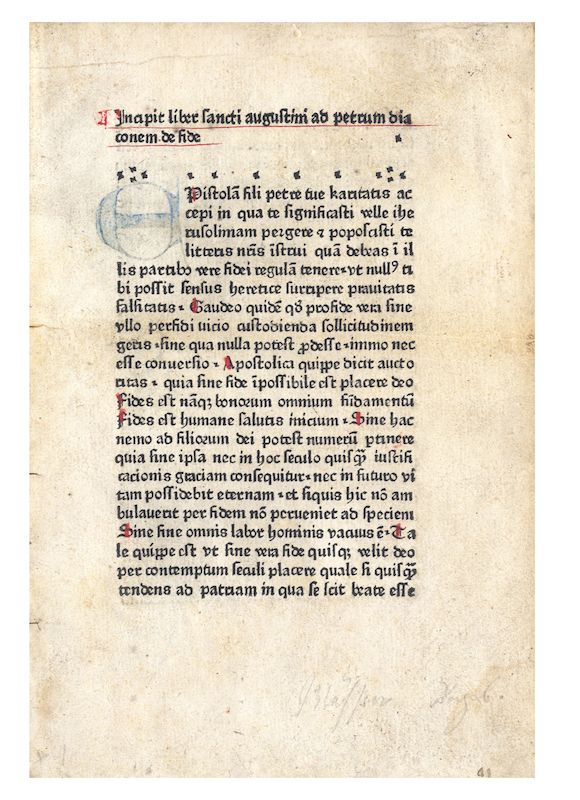 Incipit liber sancti augustini ad petrum dia
conem de fide
E
Pistolā fili petre tue karitatis ac
cepi in qua te significasti velle ihe
rusolimam pergere ⁊ poposcisti te
litteris nr̄is īstrui quā debeas ī il
lis partibꝯ vere fidei regulā tenere·vt nullꝰ ti
bi possit sensus heretice surripere prauitatis
falsitatis· Gaudeo quidē qđ profide vera sine
vllo perfidi uicio custodienda sollicitudinem
geris·sine qua nulla potest ꝓdesse·immo nec
esse conuersio· Apostolica quippe dicit aucto
ritas· quia sine fide īpossibile est placere deo
Fides est nāqꝫ bonorum omnium fūdamentū
Fides est humane salutis inicium· Sine hac
nemo ad filiorum dei potest numerū ꝑtinere
quia sine ipsa nec in hoc seculo quisꝙ̄ iustifi
cacionis graciam consequitur·nec in futuro vi
tam possidebit eternam·et siquis hic nō am
bulauerit per fidem nō perueniet ad speciem
Sine fine omnis labor hominis vacuus ē·Ta
le quippe est vt sine vera fide quisqꝫ velit deo
per contemptum seculi placere quale si quisꝙ̄
tendens ad patriam in qua se scit beate esse